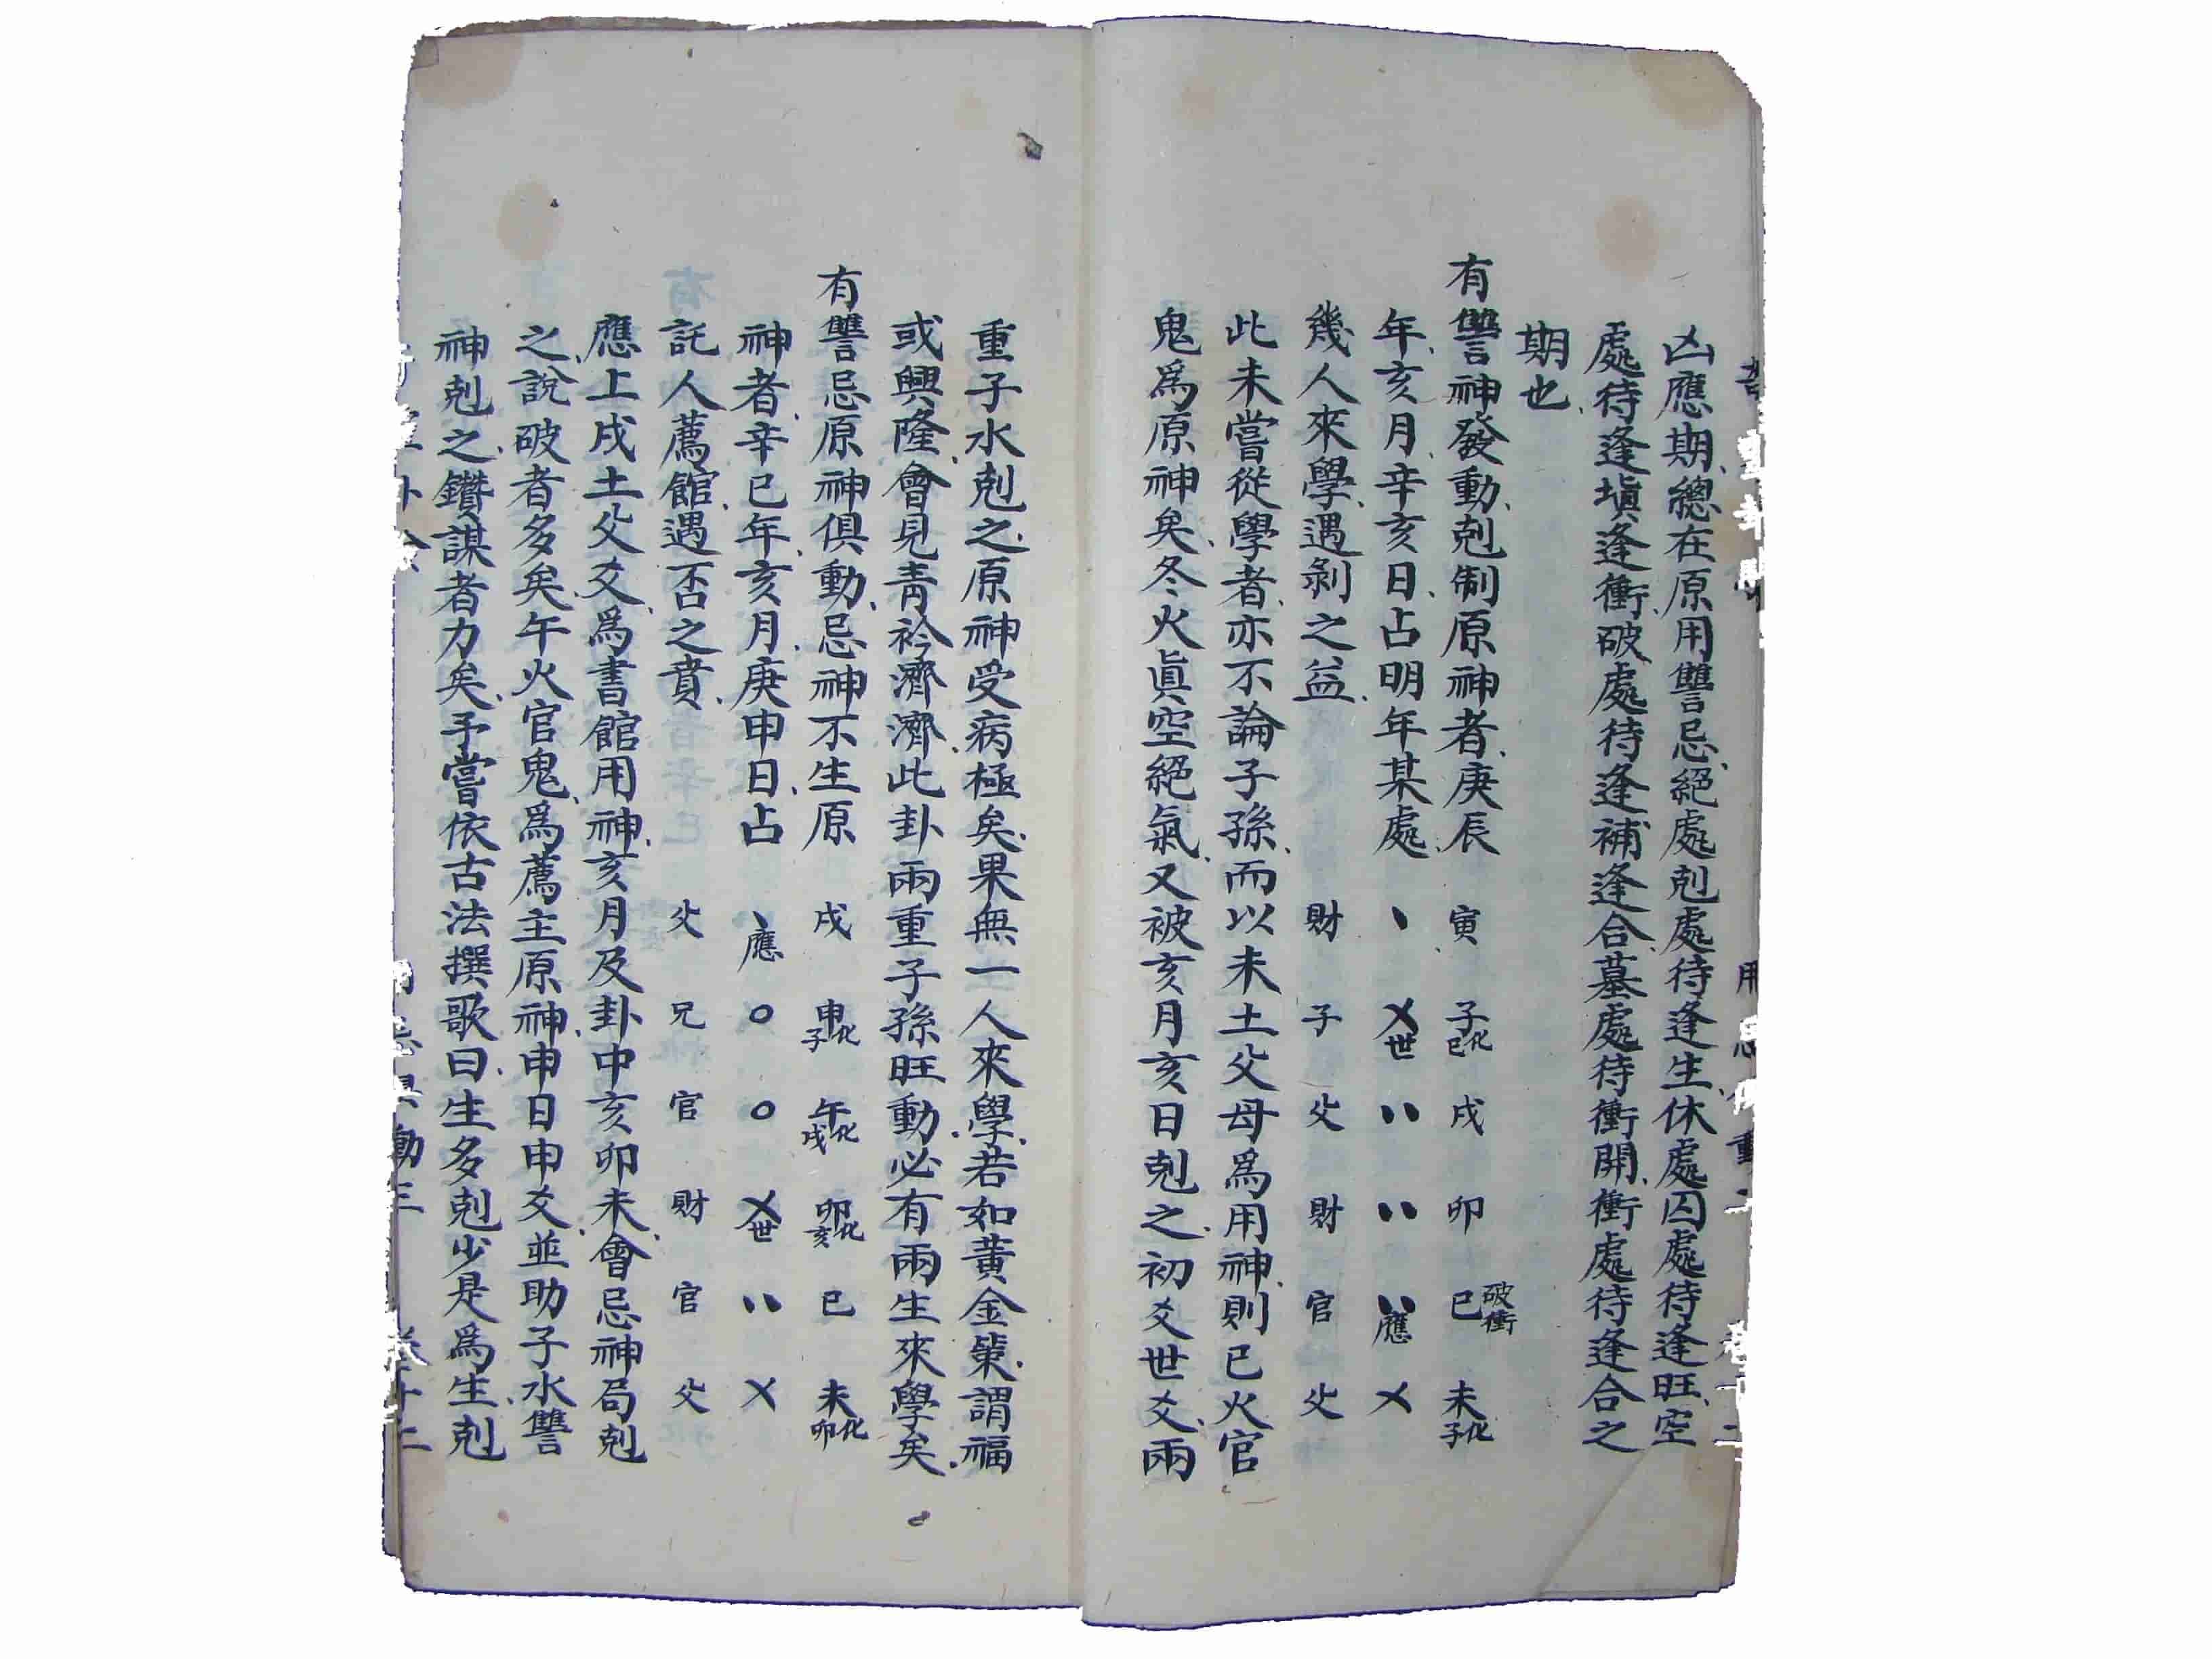 凶應期總在原用讐忌絕處剋處待逢生休處囚處待逢旺空
處待逢塡逢衝破處待逢補逢合墓處待衝開衝處待逢合之
期也
有讐神發動剋制原神者庚辰 寅 子化巳 戌 卯 巳破衝 未化子
年亥月辛亥日占明年某處 、 乂世 、、 、、 、、應 乂
幾人來學遇剝之益 財 子 父 財 官 父
此未嘗從學者亦不論子孫而以未土父母爲用神則巳火官
鬼爲原神矣冬火眞空絕氣又被亥月亥日剋之初爻世爻兩
重子水剋之原神受病極矣果無一人來學若如黃金策謂福
或興隆會見靑衿濟濟此卦兩重子孫旺動必有兩生來學矣
有讐忌原神俱動忌神不生原 戌 申化子 午化戌 卯化亥 巳 未化卯
神者辛巳年亥月庚申日占 、應 〇 〇 乂世 、、 乂
託人薦館遇否之賁 父 兄 官 財 官 父
應上戌土父爻爲書館用神亥月及卦中亥卯未會忌神局剋
之說破者多矣午火官鬼爲薦主原神申日申爻並助子水讐
神剋之鑽謀者力矣予嘗依古法撰歌曰生多剋少是爲生剋